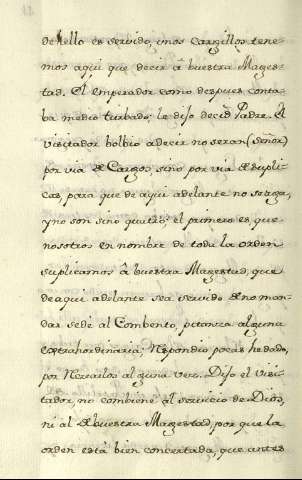 de ello es servido, unos cargillos tene
mos aqui que decir â buestra Mages-
tad. El emperador como despues conta
ba medio turbado; le dijo decid Padre. El
visitador bolbio a decir no seran (señor)
por via de Cargos, sino por via de supli
cas, para que de aqui adelante no se haga,
y no son sino quatro; el primero es que
nosotros en nombre de toda la orden
suplicamos â buestra Magestad, que
de aqui adelante sea servido de no man-
dar se dè al Combento, pitanza alguna
extrahordinaria; Respondio pocas he dado,
por alguna vez. Dijo el visi-
tador, no combiene al servicio de Dios,
ni al de buestra Magestad, por que la
orden està bien concertada, que antes